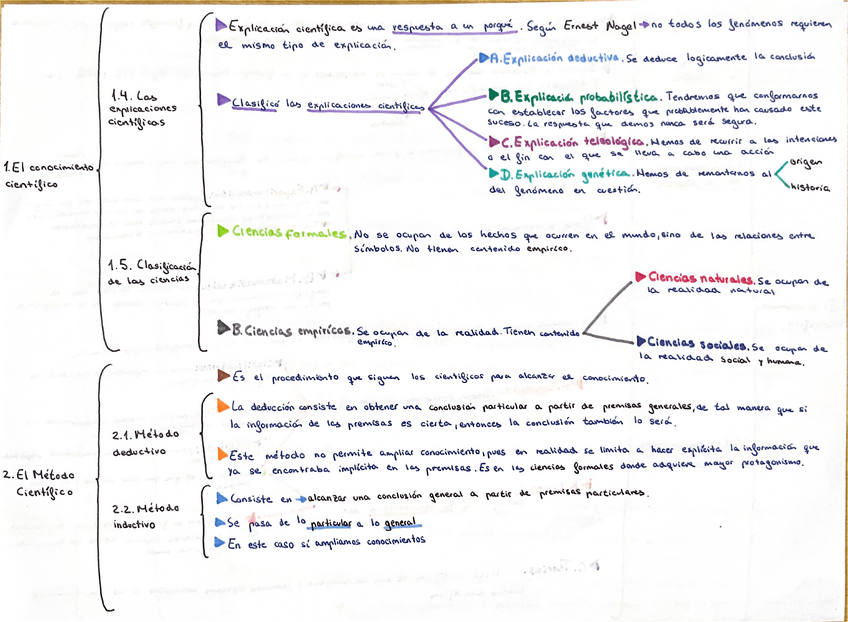 1.El conocimiento
científico
1.4. Las
explicaciones
científicas
Explicación científica es una respuesta a un porqué. Según Ernest Nagel → no todos los fenómenos requieren
el mismo tipo de explicación.
Clasificó las explicaciones científicas
A.Explicación deductiva. Se deduce logicamente la conclusión
B.Explicación probabilística. Tendremos que conformarnos
con establecer los factores que problemente han causado este
suceso. La respuesta que demos nunca será segura.
C.Explicación teleológica. Hemos de recurrir a las intenciones
o el fin con el que se lleva a cabo una acción
D.Explicación genética. Hemos de remontarnos al
del fenómeno en cuestión.
origen
historia
1.5. Clasificación
de las ciencias
Ciencias formales. No se ocupan de los hechos que ocurren en el mundo, sino de las relaciones entre
símbolos. No tienen contenido empírico.
B.Ciencias empíricas. Se ocupan de la realidad. Tienen contenido
empírico.
Ciencias naturales. Se ocupan de
la realidad natural
Ciencias sociales. Se ocupan de
la realidad social y humana.
2.El Método
Científico
Es el procedimiento que siguen los científicos para alcanzar el conocimiento.
2.1. Método
deductivo
La deducción consiste en obtener una conclusión particular a partir de premisas generales, de tal manera que si
la información de las premisas es cierta, entonces la conclusión también lo será.
Este método no permite ampliar conocimiento, pues en realidad se limita a hacer explícita la información que
ya se encontraba implícita en las premisas. Es en las ciencias formales donde adquiere mayor protagonismo.
2.2. Método
inductivo
Consiste en → alcanzar una conclusión general a partir de premisas particulares.
Se pasa de lo particular a lo general
En este caso sí ampliamos conocimientos